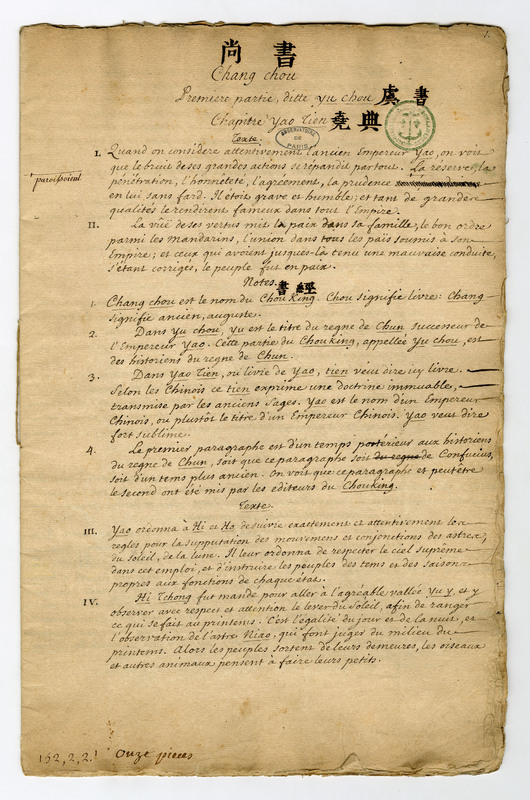 1.
尚書
Chang chou
Premiere partie, ditte yu chou 虞書
Chapitre yao Tien 堯典
OBSERVATOIRE DE PARIS
Texte.
I. Quand on considere attentivement l'ancien Empereur yao, on voit
que le bruit de ses grandes actions se répandit partout. La réserve, la
paroissoient
pénétration, l'honnêteté, l'agrément, la prudence
en lui sans fard. Il étoit grave et humble; et tant de grandes
qualités le rendirent fameux dans tout l'Empire.
II. La vüë de ses vertus mit la paix dans sa famille, le bon ordre
parmi les Mandarins, l'union dans tous les païs soumis à son
Empire; et ceux qui avoient jusques-là tenu une mauvaise conduite,
s'étant corrigés, le peuple fut en paix.
Notes. 書經
1. Chang chou est le nom du Chou King. Chou signifie livre: Chang
signifie ancien, auguste.
2. Dans yu chou, yu est le titre du regne de Chun successeur de
l'Empereur yao. Cette partie du Chou king, appellée yu chou, est
des historiens du regne de Chun.
3. Dans yao Tien, ou livre de yao, tien veut dire icy livre.
Selon les Chinois ce tien exprime une doctrine immuable,
transmise par les anciens Sages. yao est le nom d'un Empereur
Chinois, ou plutôt le titre d'un Empereur Chinois. yao veut dire
fort sublime.
4. Le premier paragraphe est d'un temps posterieur aux historiens
du regne de Chun, soit que ce paragraphe soit du regne de Confucius,
soit d'un tems plus ancien. On voit que ce paragraphe et peut être
le second ont été mis par les editeurs du Chou King.
Texte.
III. yao ordonna à Hi et Ho de suivre exactement et attentivement les
regles pour la supputation des mouvemens et conjonctions des astres,
du soleil, de la lune. Il leur ordonna de respecter le ciel suprême
dans cet emploi, et d'instruire les peuples des tems et des saisons
propres aux fonctions de chaque état.
IV. Hi Tchong fut mandé pour aller à l'agréable vallée yu y, et y
observer avec respect et attention le lever du soleil, afin de ranger
ce qui se fait au printems. C'est l'égalité du jour et de la nuit, et
l'observation de l'astre Niao, qui font juger du milieu du
printems. Alors les peuples sortent de leurs demeures, les oiseaux
et autres animaux pensent à faire leurs petits.
152,2,2.1 Onze pieces